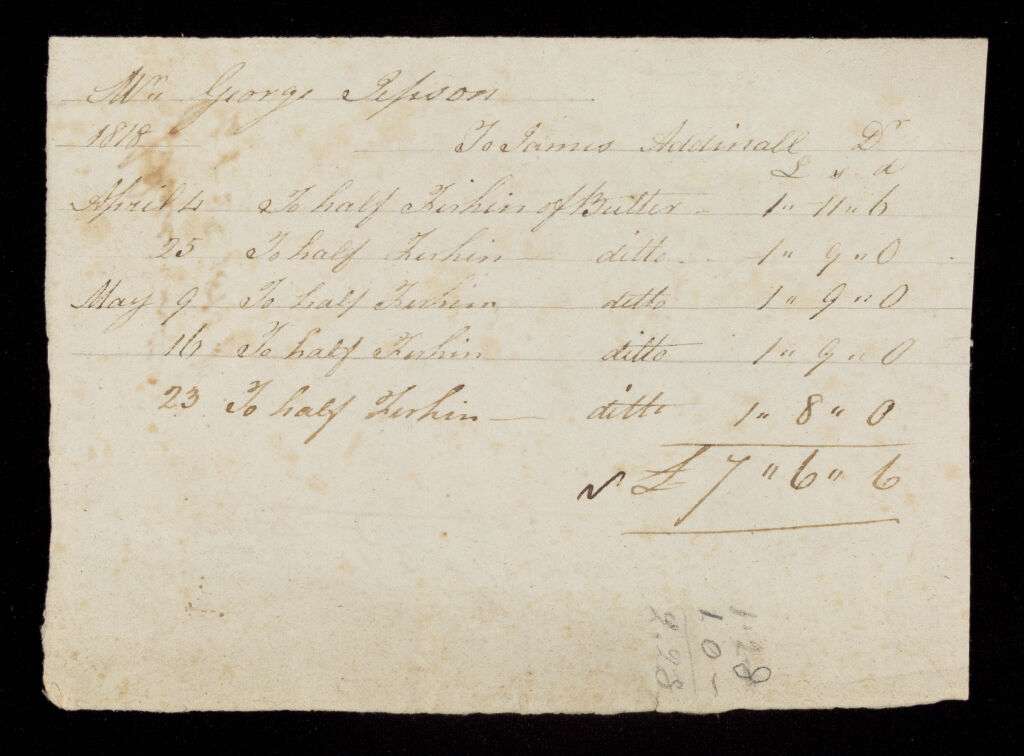 Mr George Jepson
1818 To James Addinall Dr
£ s d
April 4 To half Firkin of Butter 1 " 11 " 6
25 To half Firkin — ditto 1 " 9 " 0
May 9 To half Firkin ditto 1 " 9 " 0
16 To half Firkin ditto 1 " 9 " 0
23 To half Firkin — ditto 1 " 8 " 0
£ 7 " 6 " 6